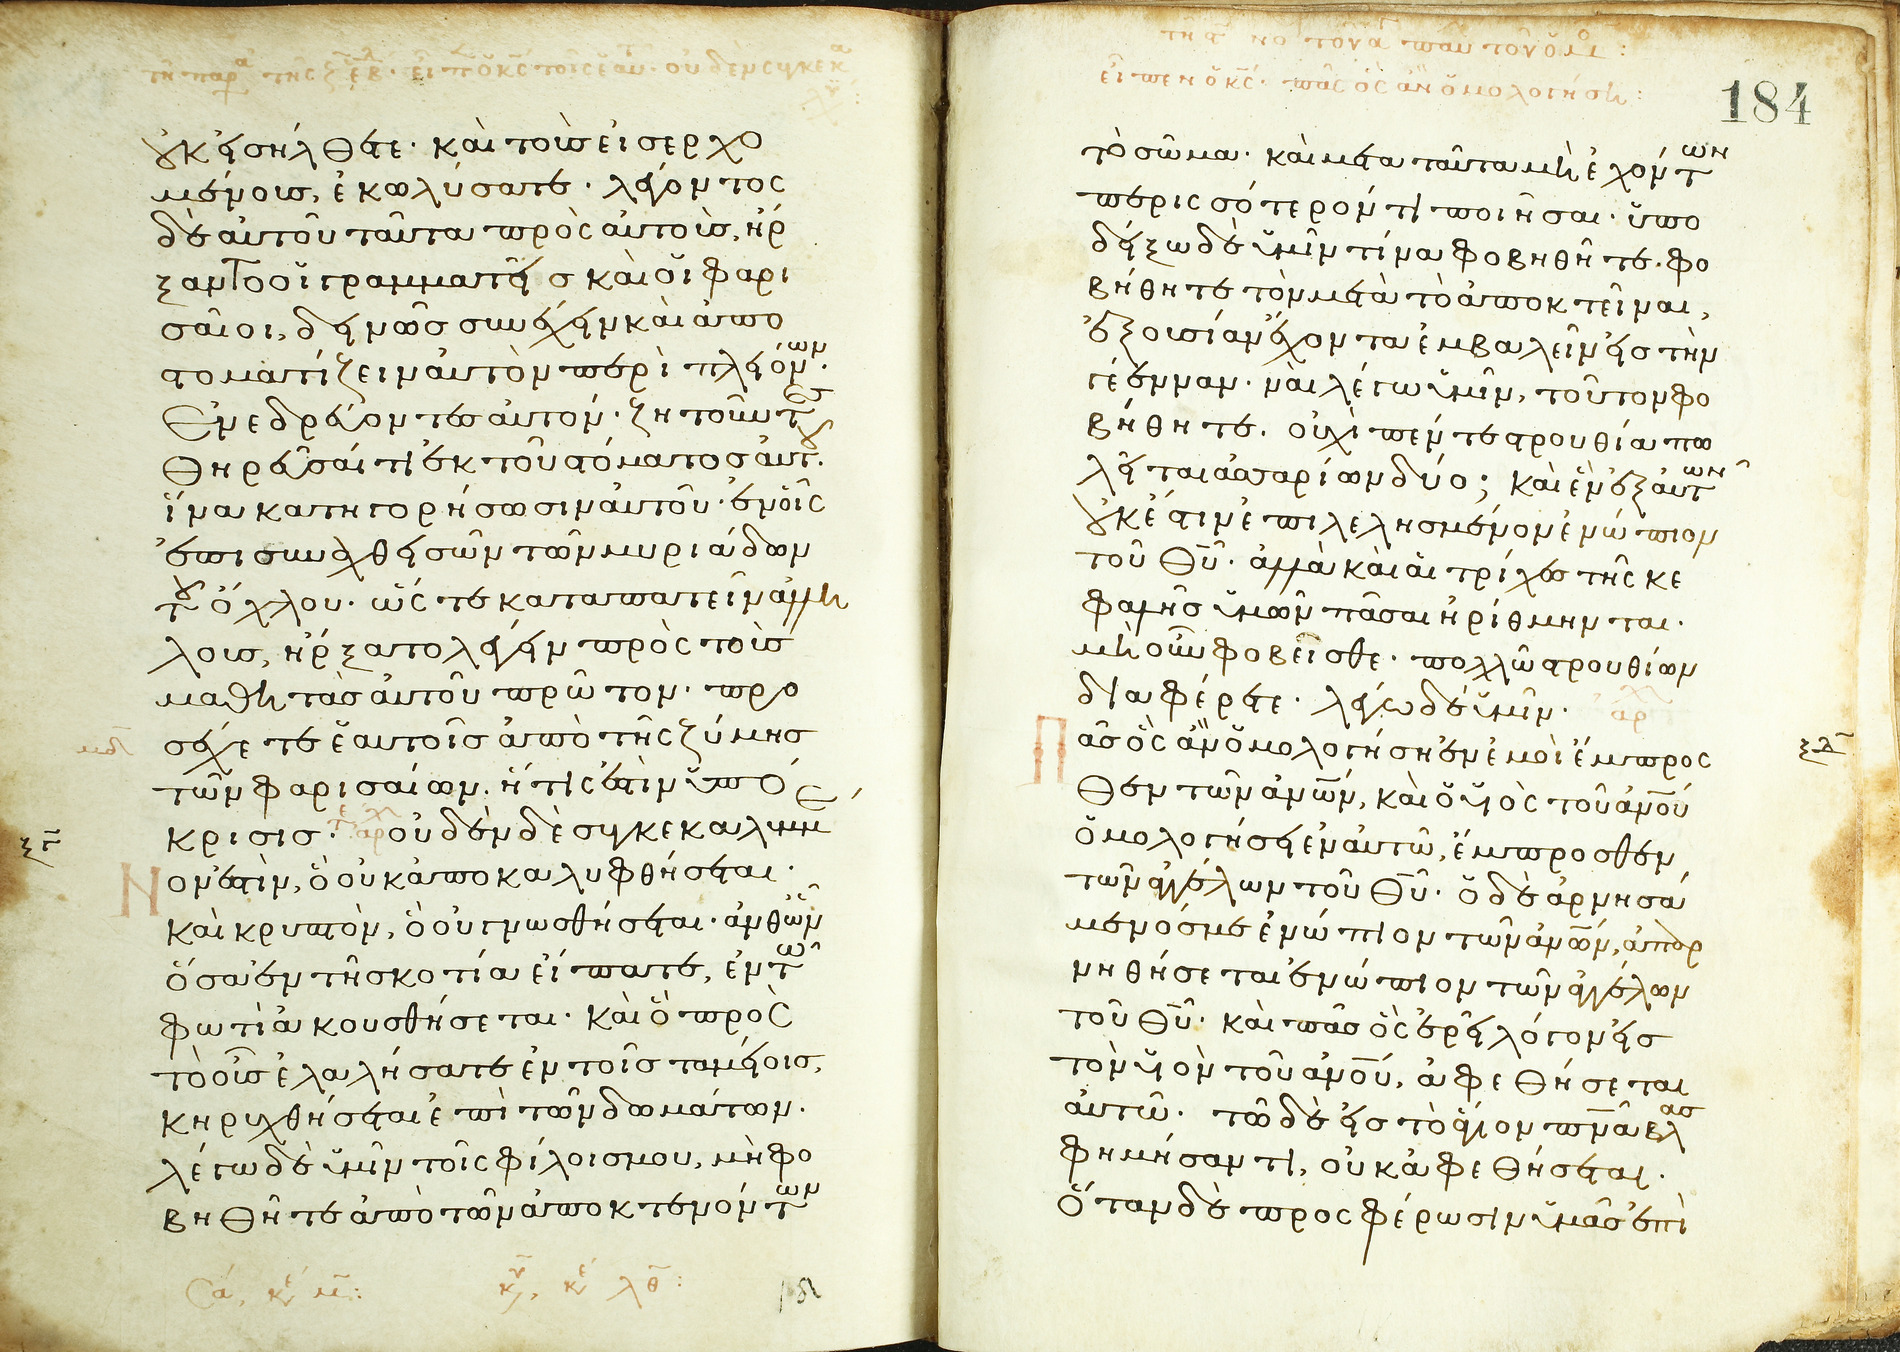 οὐκ εἰσήλθετε· καὶ τοὺς εἰσερχο
μένους, ἐκωλύσατε· λέγοντος
δὲ αὐτοῦ ταῦτα πρὸς αὐτοὺς, ἤρ
ξαντο οἱ γραμματεῖς καὶ οἱ φαρι
σαῖοι, δεινῶς συνέχειν καὶ ἀπο
στοματίζειν αὐτὸν περὶ πλειόνων·
ἐνεδρεύοντες αὐτόν· ζητοῦντες
θηρεῦσαί τι ἐκ τοῦ στόματος αὐτοῦ·
ἵνα κατηγορήσωσιν αὐτοῦ· ἐν οἷς
ἐπισυναχθεισῶν τῶν μυριάδων
τοῦ ὄχλου· ὥς τε καταπατεῖν ἀλλή
λους, ἤρξατο λέγειν πρὸς τοὺς
μαθητὰς αὐτοῦ πρῶτον· προ
σέχετε ἑαυτοῖς ἀπὸ τῆς ζύμης
τῶν φαρισαίων· ἥτις ἐστὶν ὑπό
κρισις· οὐδὲν δὲ συγκεκαλυμμ
Νον ἐστὶν, ὃ οὐκ ἀποκαλυφθήσεται·
καὶ κρυπτὸν, ὃ οὐ γνωσθήσεται· ἀνθ ὧν
ὅσα ἐν τῆ σκοτία εἴπατε, ἐν τῶ
φωτὶ ἀκουσθήσεται· καὶ ὃ πρὸς
τὸ οὖς ἐλαλήσατε ἐν τοῖς ταμείοις,
κηρυχθήσεται ἐπὶ τῶν δωμάτων·
λέγω δὲ ὑμῖν τοῖς φίλοις μου, μὴ φο
βηθῆτε ἀπὸ τῶν ἀποκτενόντων
εἶπεν ὁ κς· πᾶς ὃς ἂν ὁμολογήση:
184
τὸ σῶμα· καὶ μετὰ ταῦτα μὴ ἐχόντων
περισσότερόν τι ποιῆσαι· ὑπο
δείξω δὲ ὑμῖν τίνα φοβηθῆτε· φο
βήθητε τὸν μετὰ τὸ ἀποκτεῖναι,
ἐξουσίαν ἔχοντα ἐμβαλεῖν εἰς τὴν
γέενναν· ναὶ λέγω ὑμῖν, τοῦτον φο
βήθητε· οὐχὶ πέντε στρουθία πω
λεῖται ἀσσαρίων δύο; καὶ ἓν ἐξ αὐτῶν
οὐκ ἔστιν ἐπιλελησμένον ἐνώπιον
τοῦ θυ· ἀλλὰ καὶ αἱ τρίχες τῆς κε
φαλῆς ὑμῶν πᾶσαι ἠρίθμηνται·
μὴ οὖν φοβεῖσθε· πολλῶ στρουθίων
διαφέρετε· λέγω δὲ ὑμῖν·
Πᾶς ὃς ἂν ὁμολογήση ἐν ἐμοὶ ἔμπροσ
θεν τῶν ἀνων, καὶ ὁ υἱὸς τοῦ ἀνου
ὁμολογήσει ἐν αὐτῶ, ἔμπροσθεν
τῶν ἀγγέλων τοῦ θυ· ὁ δὲ ἀρνησά
μενός με ἐνώπιον τῶν ἀνων, ἀπαρ
νηθήσεται ἐνώπιον τῶν ἀγγέλων
τοῦ θυ· καὶ πᾶς ὃς ἐρεῖ λόγον εἰς
τὸν υἱὸν τοῦ ἀνου, ἀφεθήσεται
αὐτῶ· τῶ δὲ εἰς τὸ ἅγιον πνα βλασ
φημήσαντι, οὐκ ἀφεθήσεται·
Ὅταν δὲ προσφέρωσιν ὑμᾶς ἐπὶ